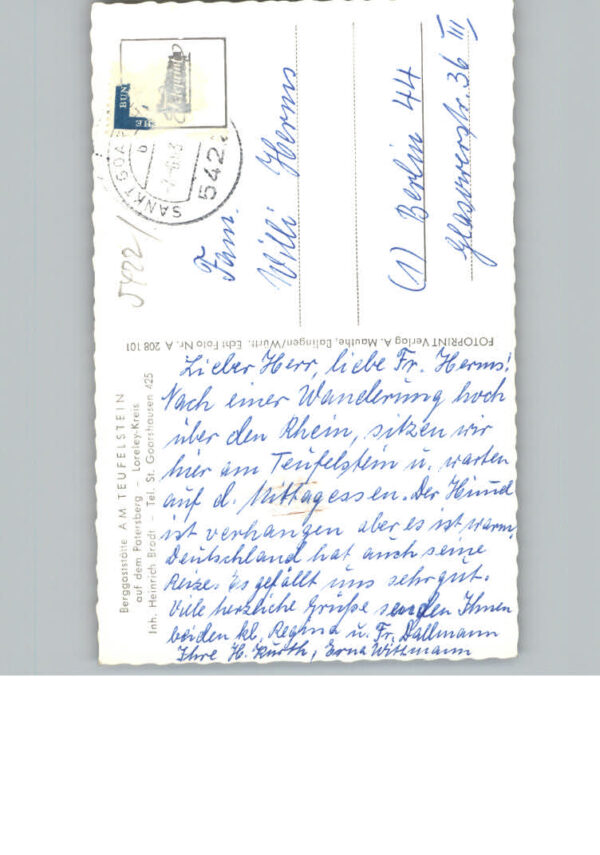 Fam.
Willi Herms
(1) Berlin 44
Glasowerstr. 36 III
SANKT GOAR
542
BUN
5422/
FOTOPRINT Verlag A. Mauthe, Balingen/Württ. Echt Foto Nr. A 208 101
Berggaststätte AM TEUFELSTEIN
auf dem Patersberg - Loreley-Kreis
Inh. Heinrich Bradt - Tel. St. Goarshausen 425
Lieber Herr, liebe Fr. Herms!
Nach einer Wanderung hoch
über den Rhein, sitzen wir
hier am Teufelstein u. warten
auf d. Mittagessen. Der Himmel
ist verhangen aber es ist warm.
Deutschland hat auch seine
Reize. Es gefällt uns sehr gut.
Viele herzliche Grüße senden Ihnen
beiden kl. Regina u. Fr. Dallmann
Ihre H. Kurth, Erna Withmann